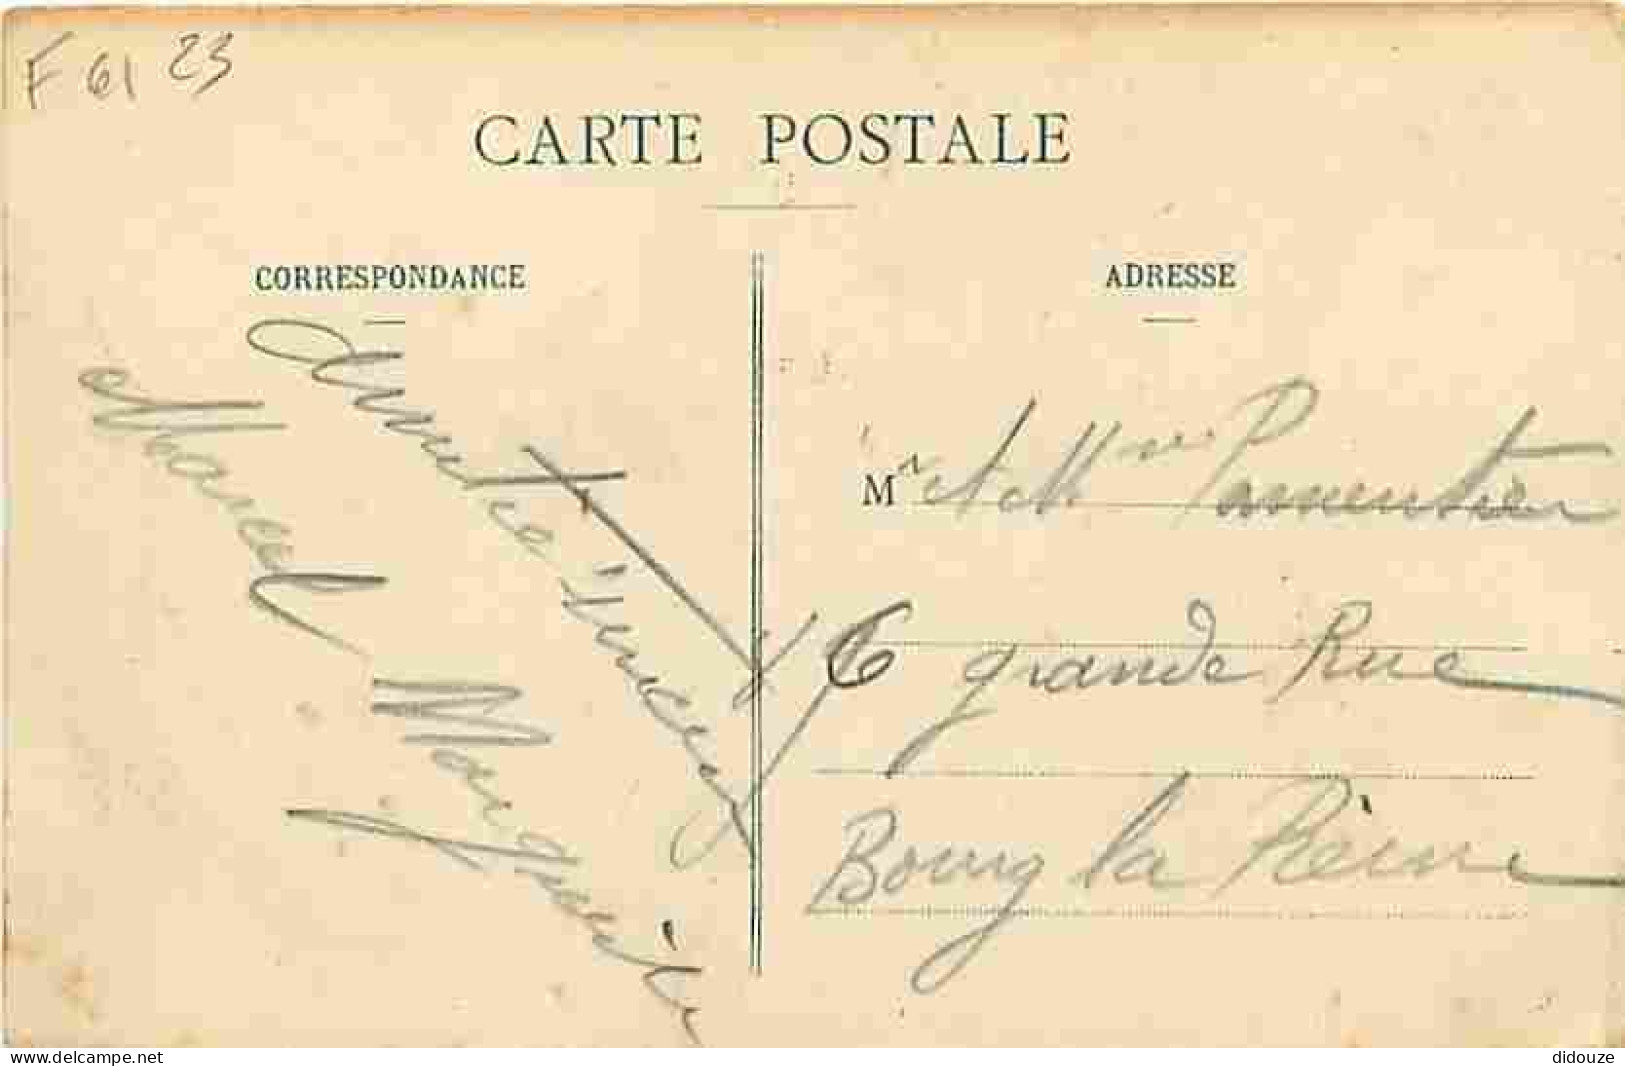 F 61 23
CARTE POSTALE
CORRESPONDANCE
Amitié sincère
Marcel Marquerite
ADRESSE
Mr et Mme Parmentier
6 grande Rue
Bourg la Reine
www.delcampe.net
didouze